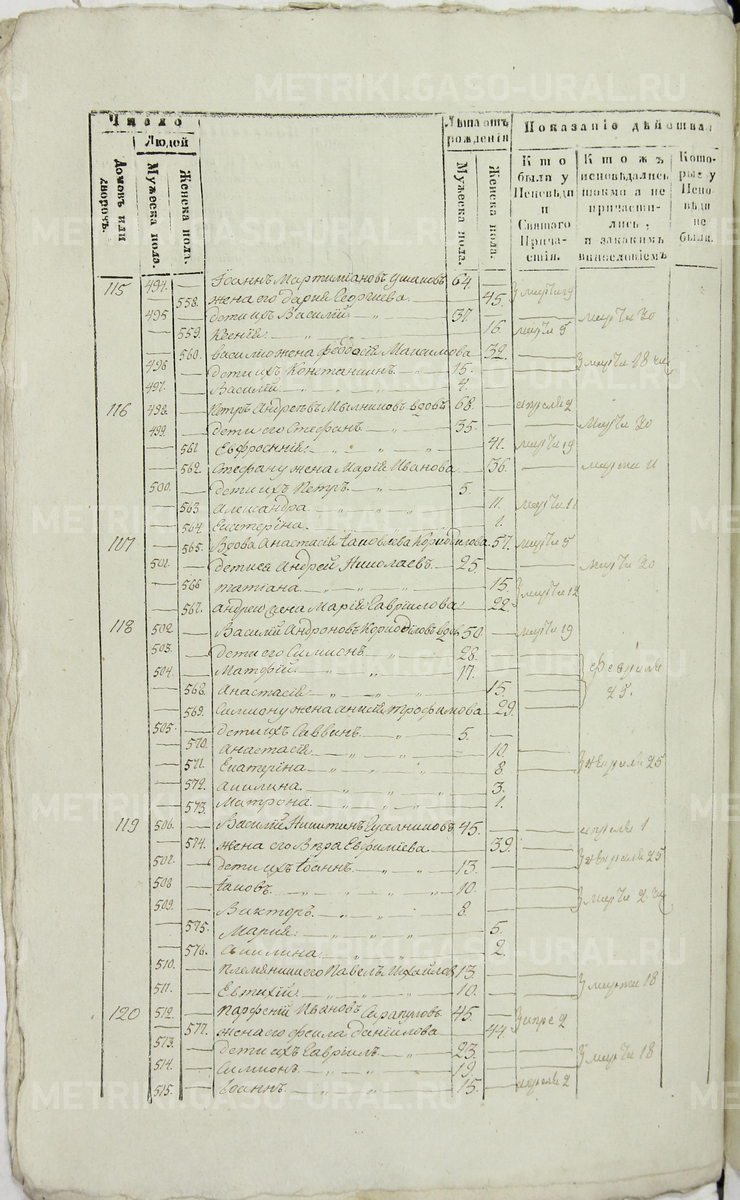 METRIKI.GASO-URAL.RU
Число
Людей
Домовъ или дворовъ.
Мужеска пола.
Женска пола.
Лѣта отъ рожденія
Мужеска пола.
Женска пола.
Показаніе дѣйства:
Кто были у Исповѣди и Святаго Причастія.
Кто жъ исповѣдались токмо а не причастились, и за какимъ винословіемъ
Которые у Исповѣди не были.
115 494. Іоаннъ Мартиміановъ Ушаковъ 64.
558. жена его Дарія Георгіева 45. марта 19
495 дети ихъ Василій 37. марта 20
559. Ксенія 16. марта 5
560. Василію жена Феодосія Максимова 32.
496 дети ихъ Константинъ 15. марта 18
497. Василій 4.
116 498. Петръ Андреевъ Мыльниковъ вдовъ 68. апреля 2
499. дети его Стефанъ 35. марта 20
561 Евфросинія 41. марта 19
562. Стефану жена Марія Иванова 36. марта 11
500. дети ихъ Петръ 5.
563 Александра 11. марта 11
564. Екатерина 1.
117 565. Вдова Анастасія Іаковлева 57. марта 5
501. дети ея Андрей Николаевъ 25. марта 20
566 Татіана 15. марта 12
567. Андрею жена Марія Гавріилова 22.
118 502. Василій Андроновъ вдовъ 50 марта 19
503. дети его Симионъ 28.
504. Матфій 17. февраля 25.
568. Анастасія 15.
569. Симиону жена Анисія Трофимова 29.
505. дети ихъ Саввинъ 5.
570. Анастасія 10.
571. Екатерина 8. февраля 25
572. Акилина 3.
573. Матрона 1.
119 506. Василій Никитинъ 45. апреля 1
574. жена его Вѣра Евфиміева 39. февраля 25
507. дети ихъ Іоаннъ 13.
508 Іаковъ 10. марта 2
509. Викторъ 8.
575. Марія 5.
576. Акилина 2.
510. Племянники его Павелъ Михайловъ 13.
511. Евтихій 10. марта 18
120 512. Парфеній Ивановъ Сарапуловъ 45. апре 2
577. жена его Фекла Даніилова 44.
513. дети ихъ Гавріилъ 23. марта 18
514. Симионъ 19.
515. Іоаннъ 15. апреля 2